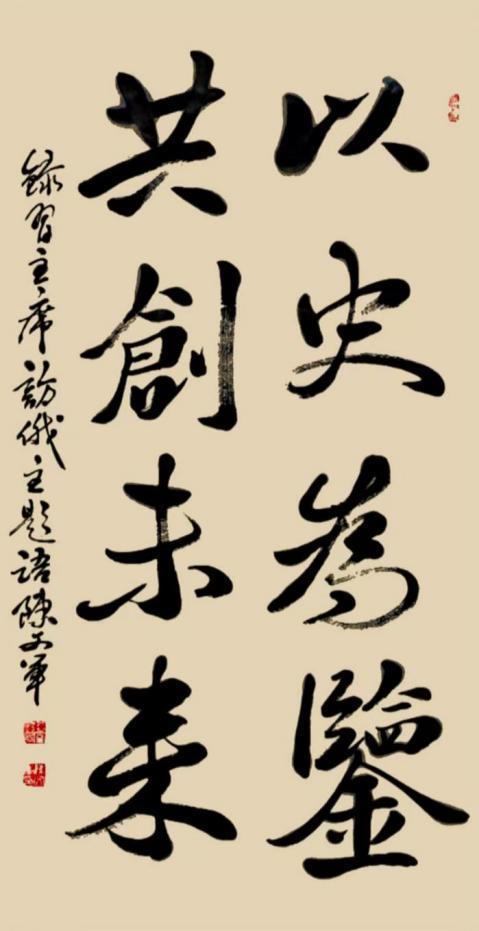 以史為鑒
共創未來
錄習主席訪俄主題語陳文軍